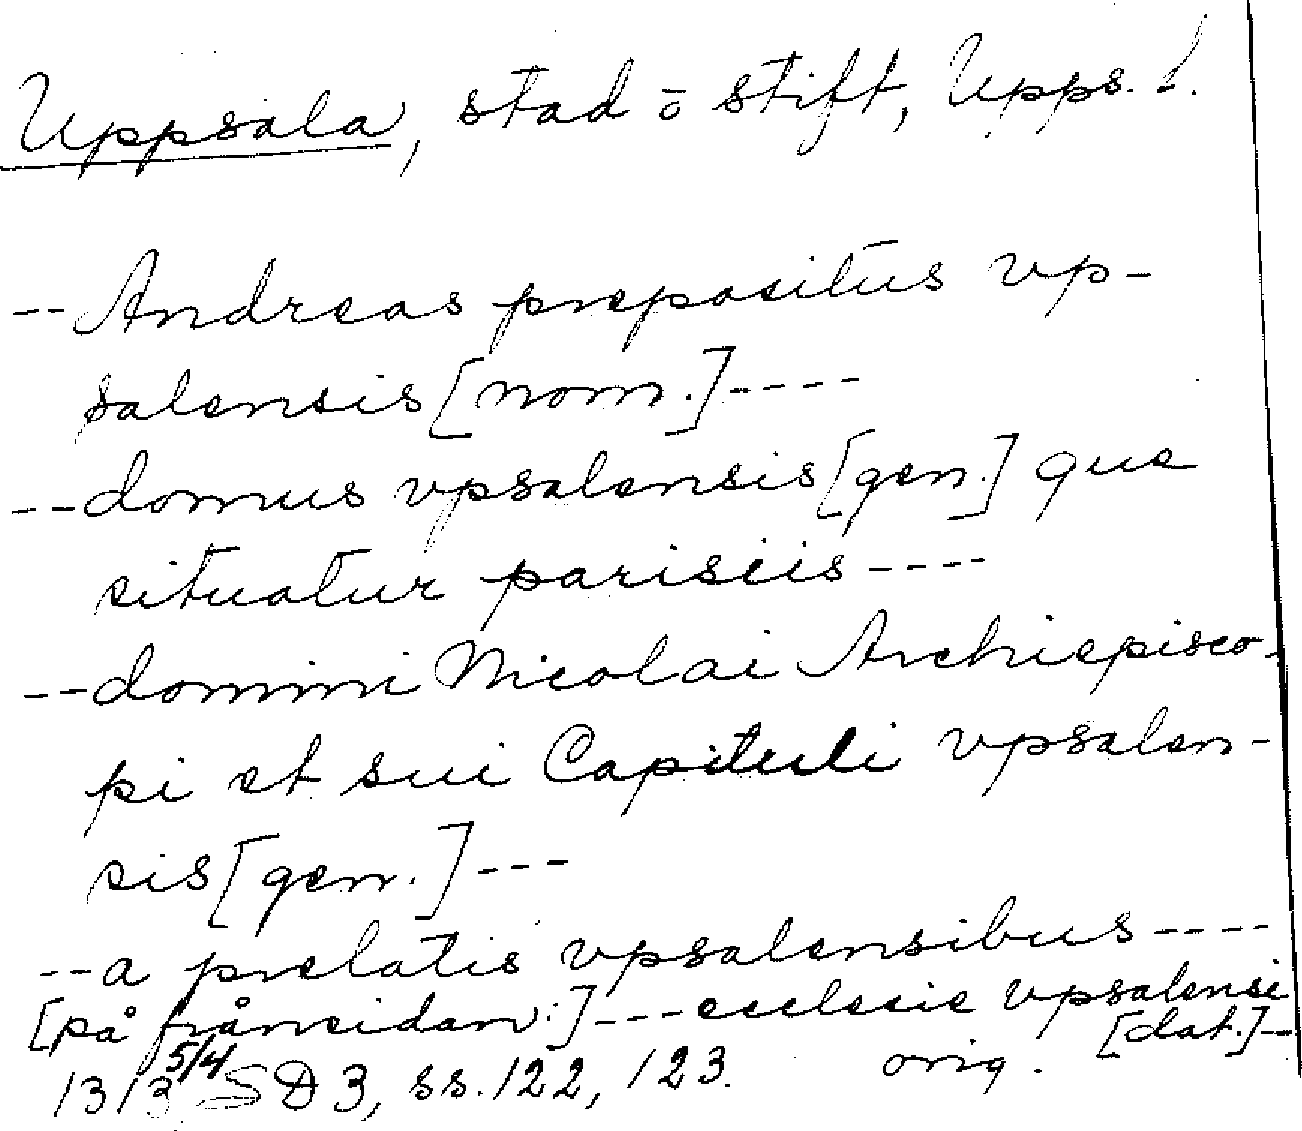 Uppsala, stad o stift, Upps. l.
--Andreas prepositus vp-
salensis [nom.]----
--domus vpsalensis [gen.] que
situatur parisiis----
--domini Nicolai Archiepisco-
pi et sui Capituli vpsalen-
sis [gen.]---
--a prelatis vpsalensibus----
[på frånsidan:]---ecclesie vpsalensi
[dat.]--
1313 5/4 SD 3, ss. 122, 123. orig.